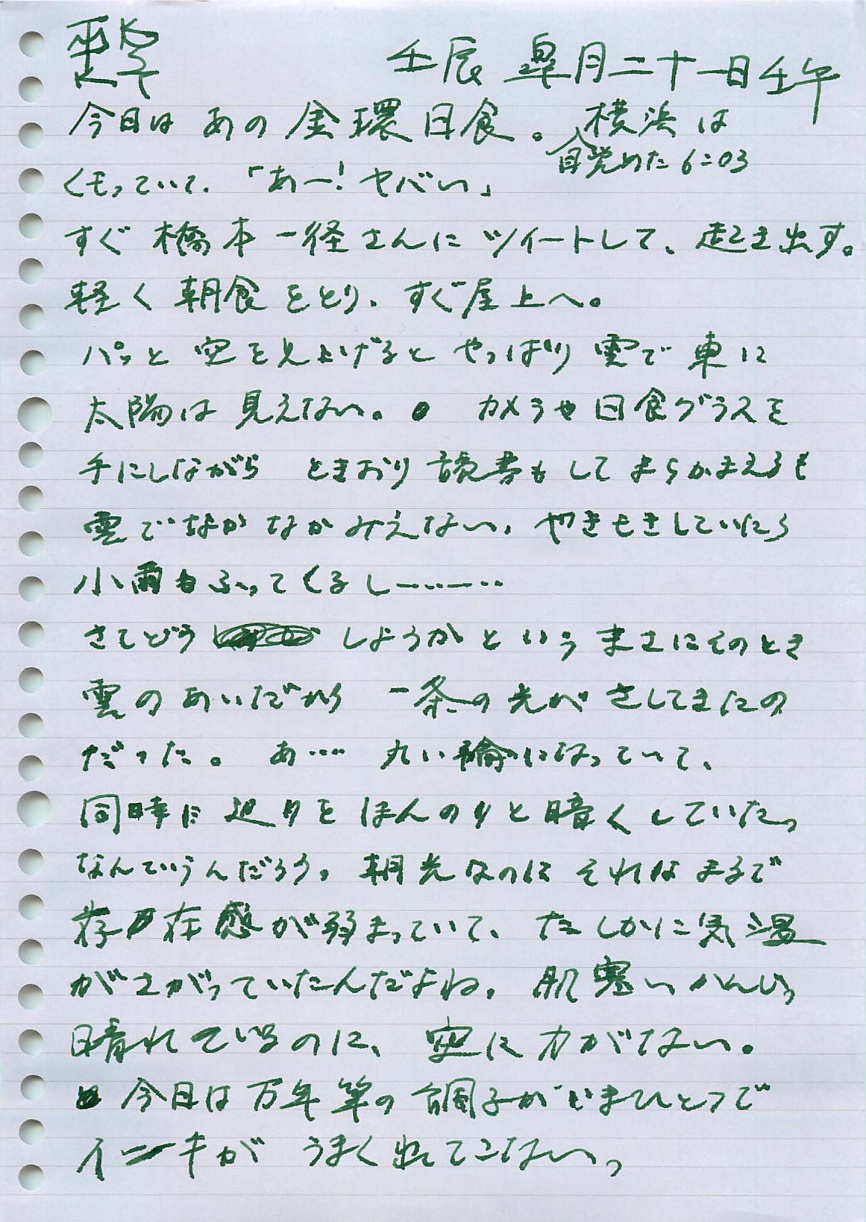 壬辰 皐月二十一日壬午
今日は あの 金環日食。横浜は
目覚めた 6:03
くもっていて、「あー!ヤバい」
すぐ 橋本一径さんに ツイートして、起き出す。
軽く 朝食をとり、すぐ屋上へ。
パッと 空を見上げると やっぱり 雲で 東に
太陽は 見えない。 カメラや 日食グラスを
手にしながら ときおり 読書もして まちかまえるも
雲で なかなか みえない、やきもきしていたら
小雨もふってくるし………
さてどう しようか という まさにそのとき
雲の あいだから 一条の光が さしてきたの
だった。 あ… 丸い輪になっていて、
同時に 辺りを ほんのりと 暗くしていた。
なんていうんだろう。朝光なのに それはまるで
存在感が弱まっていて、たしかに気温
がさがっていたんだよね。肌寒いかんじ。
晴れているのに、空に力がない。
今日は 万年筆の 調子がいまひとつで
インキが うまく出てこない。